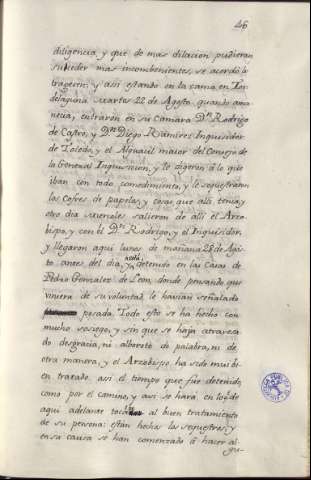 46
diligencia, y que de mas dilacion pudieran
suceder mas incombenientes, se acordó lo
tragesen; y assi estando en la cama en Tor-
delaguna martes 22 de Agosto, quando ama-
necia, entraron en su Camara Dn. Rodrigo
de Castro, y Dn. Diego Ramires Inquisidor
de Toledo, y el Alguacil maior del Consejo de
la General Inquisicion, y le digeron á lo que
iban con todo comedimiento, y le sequestraron
los Cofres de papeles, y cosas que alli tenia, y
otro dia miercoles salieron de alli el Arzo-
bispo, y con el Dn. Rodrigo, y el Inquisidor,
y llegaron aqui lunes de mañana 28 de Agos-
to antes del dia, y está detenido en las Casas de
Pedro Gonzalez de Leon, donde pensando que
viniera de su voluntad, le havian señalado
posada. Todo esto se ha hecho con
mucho sosiego, y sin que se haja atravesa-
do desgracia, ni alboroto de palabra, ni de
otra manera, y el Arzobispo ha sido mui bi-
en tratado, asi el tiempo que fue detenido,
como por el camino, y asi se hará en lo q.e de
aqui adelante toca al buen tratamiento
de su persona: están hechos los sequestros, y
en su causa se han comenzado á hacer al-
gu-